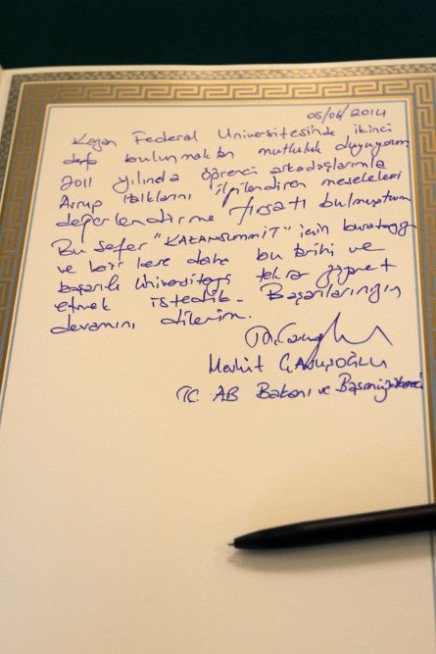 05/06/2014
Kazan Federal Üniversitesinde ikinci
defa bulunmaktan mutluluk duyuyorum
2011 yılında öğrenci arkadaşlarımla
Avrup ilgilendiren meseleleri
değerlendirme fırsatı bulmuştum
Bu sefer "KAZANSUMMIT" için buradayız
ve bir kere daha bu ve
başarılı üniversiteyi tekrar ziyaret
etmek istedik. Başarılarınızın
devamını dilerim.
Mevlüt ÇAVUŞOĞLU
TC. AB Bakanı ve Başmüzakereci